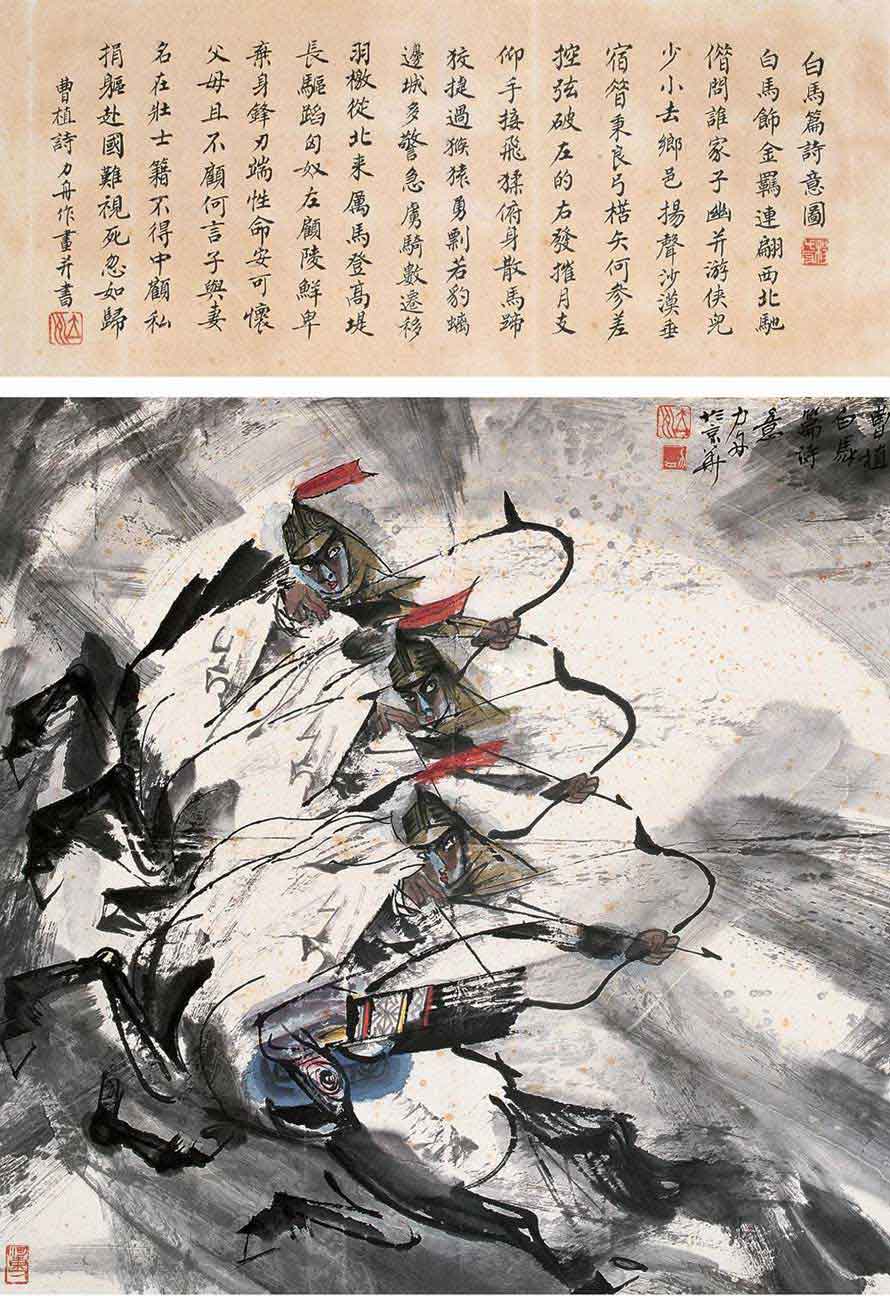 白馬篇詩意圖
白馬飾金羈連翩西北馳
借問誰家子幽并游俠兒
少小去鄉邑揚聲沙漠垂
宿昔秉良弓楛矢何參差
控弦破左的右發摧月支
仰手接飛猱俯身散馬蹄
狡捷過猴猿勇剽若豹螭
邊城多警急虜騎數遷移
羽檄從北来厲馬登高堤
長驅蹈匈奴左顧陵鮮卑
棄身鋒刃端性命安可懷
父母且不顧何言子與妻
名在壯士籍不得中顧私
捐軀赴國難視死忽如歸
曹植詩 力舟作畫并書
曹植
白馬
篇诗
意
力舟
於京華